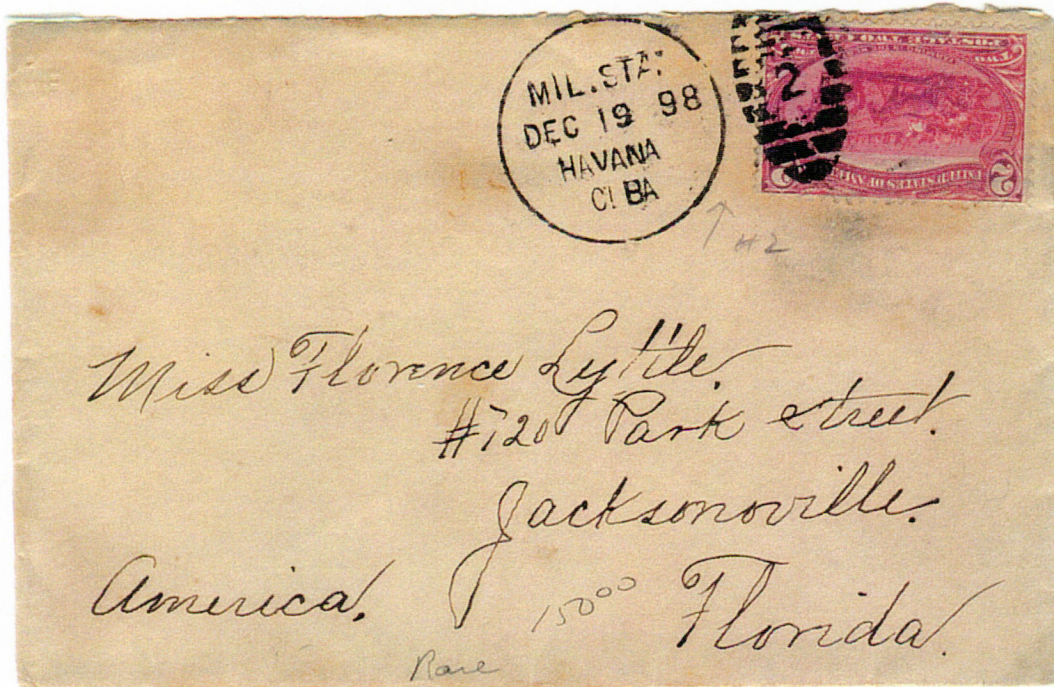 MIL. STA.
DEC 19 98
HAVANA
CUBA
2
TWO
UNITED STATES OF AMERICA
2
#2
Miss Florence Lyttle.
#720 Park Street.
Jacksonoville.
America. Florida.
150 00
Rare